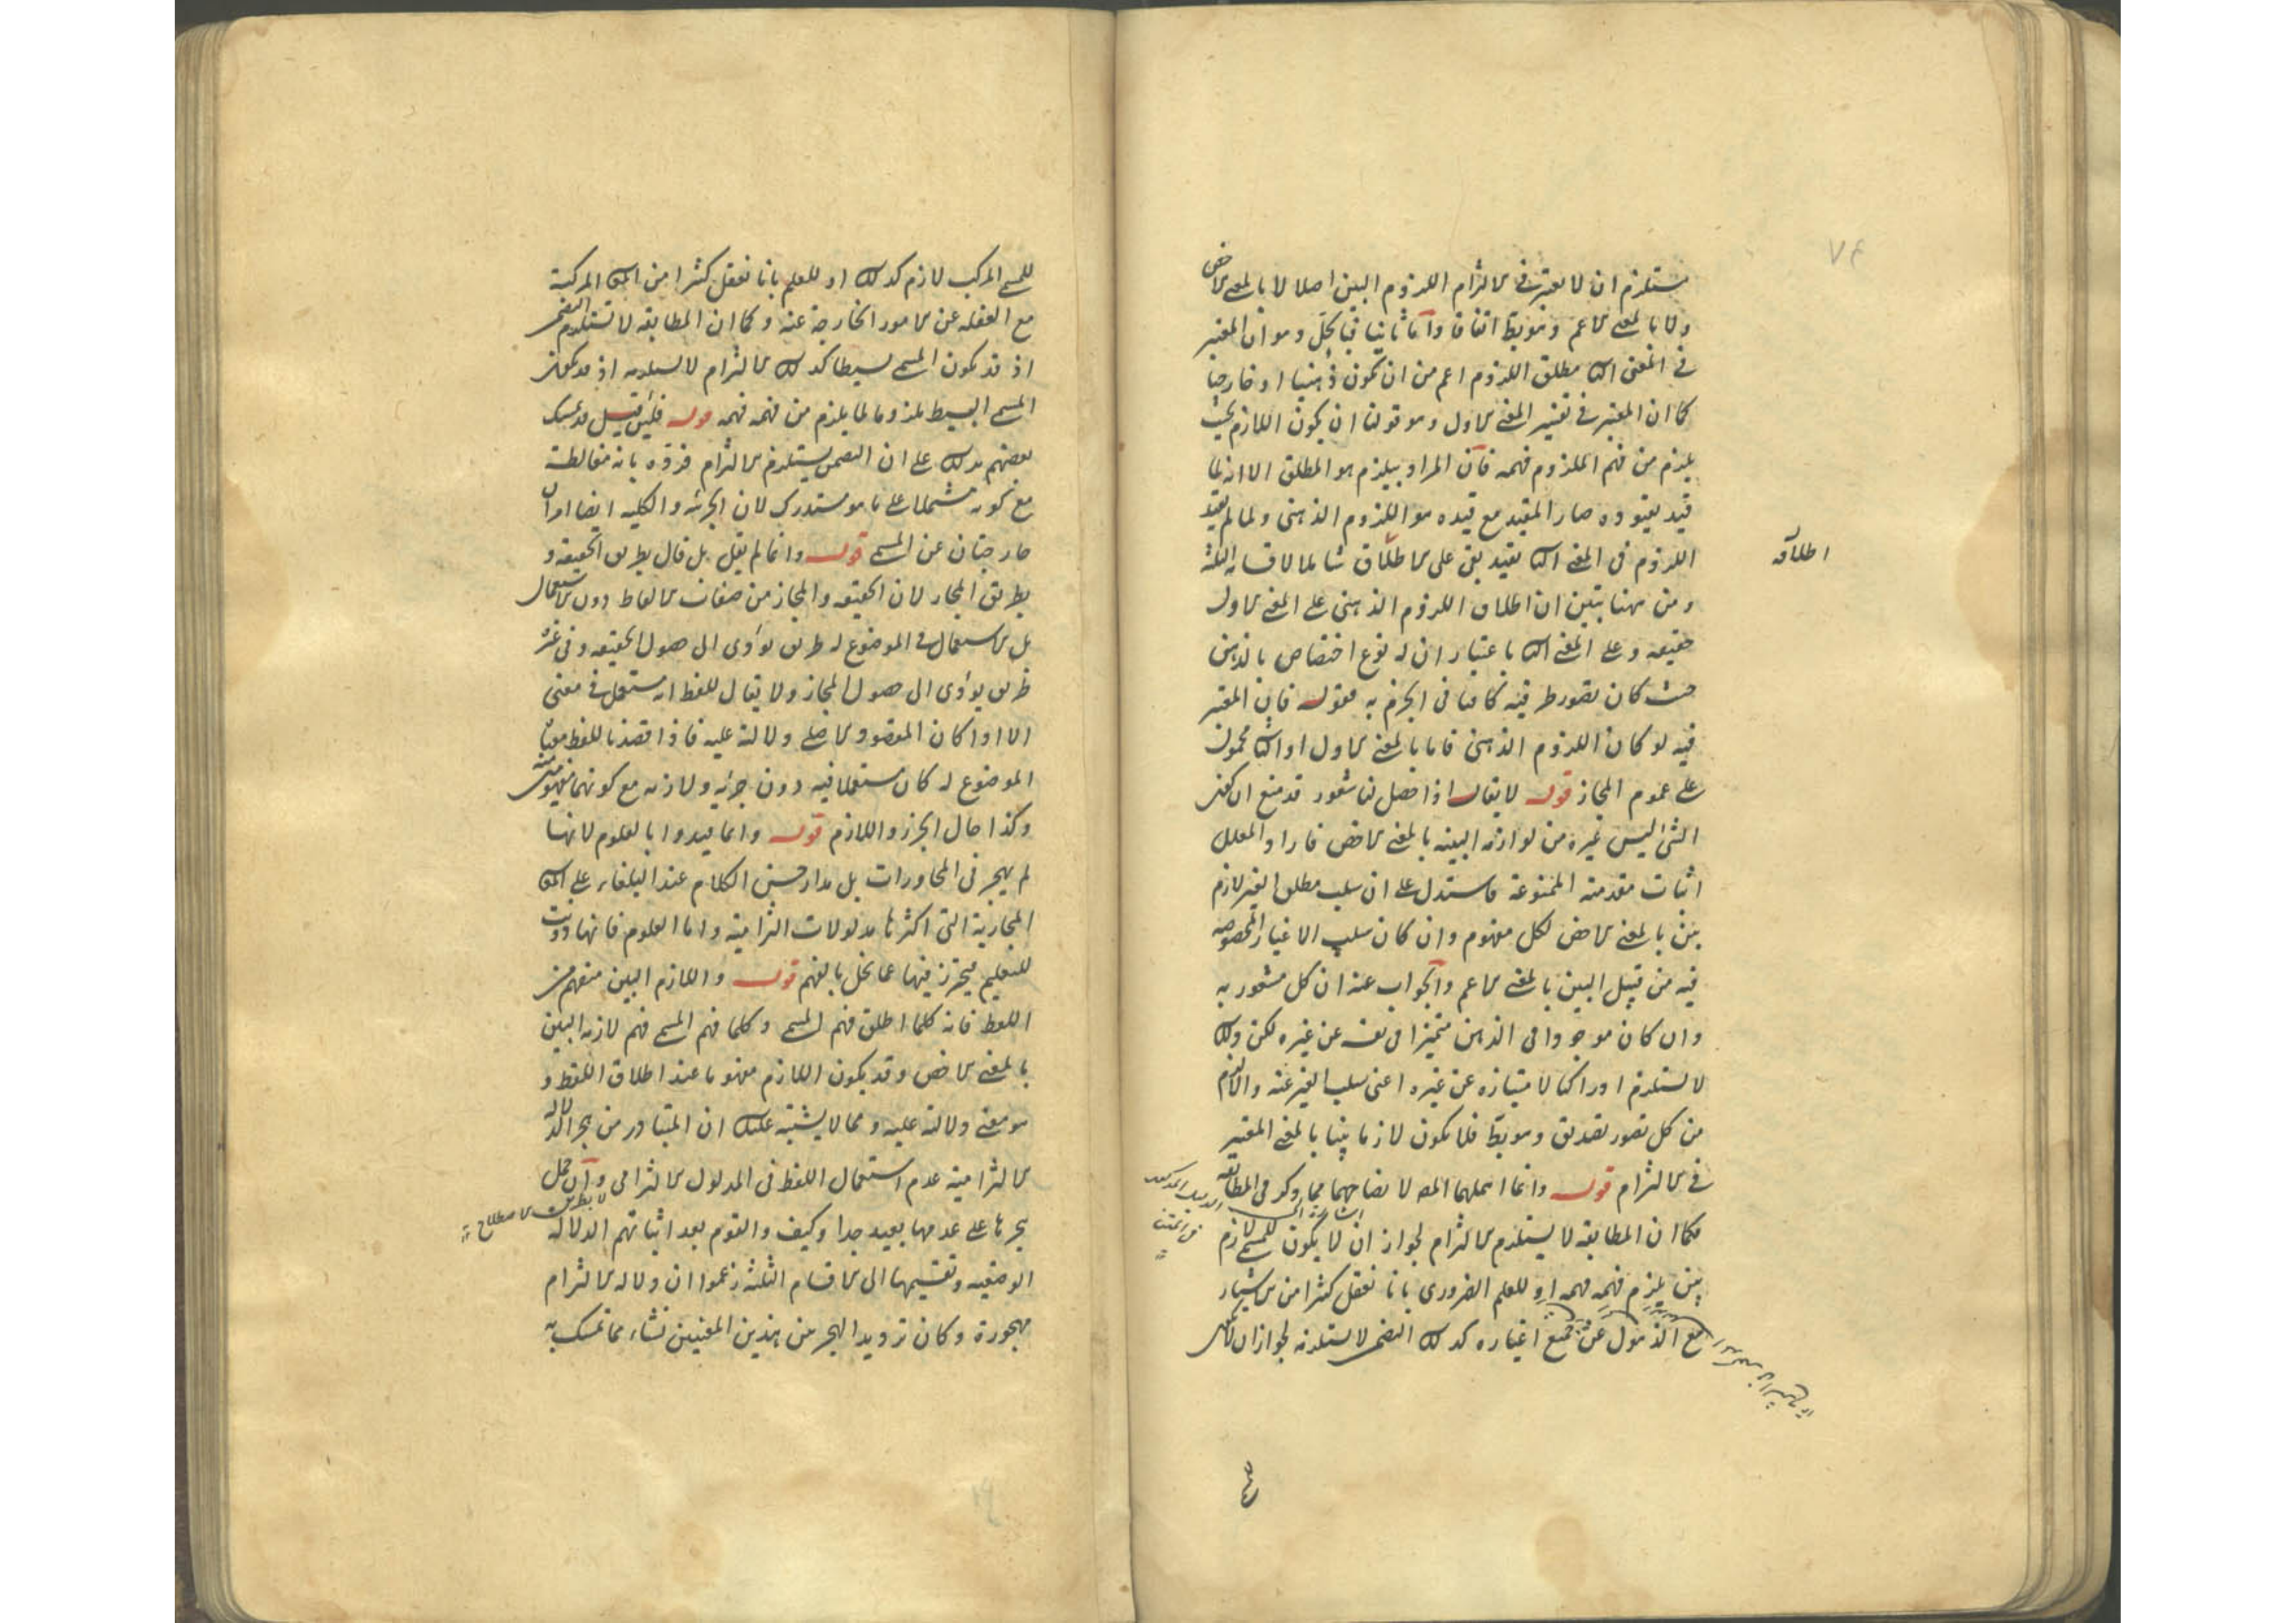 يستلزم ان لا يعتبر في الالتزام اللزوم البين اصلا لا بالمعنى الاخص
ولا بالمعنى الاعم وهو بط اتفاقا واما ثانيا فبالحل وهو ان المعتبر
في المعنى الثا مطلق اللزوم اعم من ان يكون ذهنيا او خارجيا
كما ان المعتبر في تفسير المعنى الاول وهو قولنا ان يكون اللازم بحيث
يلزم من فهم الملزوم فهمه فان المراد بيلزم هو المطلق الا انه لما
قيد بقيوده صار المقيد مع قيده هو اللزوم الذهني ولما لم يقيد
اللزوم في المعنى الثا بقيد بقي على الاطلاق شاملا لاقسامه الثلثة
اطلاقه
ومن ههنا يتبين ان اطلاق اللزوم الذهني على المعنى الاول
حقيقه وعلى المعنى الثا باعتبار ان له نوع اختصاص بالذهن
حيث كان تصور طرفيه كافيا في الجزم به فقوله فان المعتبر
فيه لو كان اللزوم الذهني فاما بالمعنى الاول او الثا محمول
على عموم المجاز قوله لا يقال اذا حصل لنا شعور قد منع ان كون
الشئ ليس غيره من لوازمه البينه بالمعنى الاخص فاراد المعلل
اثبات مقدمته الممنوعة فاستدل على ان سلب مطلق الغير لازم
بين بالمعنى الاخص لكل مفهوم وان كان سلب الاغيار المخصوصه
فيه من قبيل البين بالمعنى الاعم والجواب عنه ان كل مشعور به
وان كان موجودا في الذهن متميزا في نفسه عن غيره لكن ذلك
لا يستلزم ادراكنا لامتيازه عن غيره اعنى سلب الغير عنه والا لزم
من كل تصور تصديق وهو بط فلا يكون لازما بينا بالمعنى المعتبر
في الالتزام قوله وانما اهملهما المص لاتضاحهما مما ذكر في المطابقه
فكما ان المطابقه لا يستلزم الالتزام لجواز ان لا يكون للمسمى لازم
بين يلزم فهمه فهمه او للعلم الضرورى بانا نعقل كثيرا من الاشياء
مع الذهول عن جميع اغياره كذلك التضمن لا يستلزمه لجواز ان لا يكون
للمسمى المركب لازم كذلك او للعلم بانا نعقل كثيرا من المعا المركبة
مع الغفله عن الامور الخارجة عنه وكما ان المطابقه لا تستلزم التضمن
اذ قد يكون المسمى بسيطا كذلك الالتزام لا يستلزمه اذ قد يكون
المسمى البسيط ملزوما لما يلزم من فهمه فهمه قوله فلئن قيل قد تمسك
بعضهم بذلك على ان التضمن يستلزم الالتزام فردّه بانه مغالطة
مع كونه مشتملا على ما هو مستدرك لان الجزئيه والكليه ايضا امران
خارجتان عن المسمى قوله وانما لم يقل بل قال بطريق الحقيقه و
بطريق المجاز لان الحقيقه والمجاز من صفات الالفاظ دون الاستعمال
بل الاستعمال في الموضوع له طريق يؤدى الى حصول الحقيقه وفي غيره
طريق يؤدى الى حصول المجاز ولا يقال للفظ انه مستعمل في معنى
الا اذا كان المقصود الاصلى دلالته عليه فاذا قصدنا للفظ معناه
الموضوع له كان مستعملا فيه دون جزئه ولازمه مع كونهما مفهومين منه
وكذا حال الجزء واللازم قوله وانما قيدوا بالعلوم لانها
لم يهجر في المحاورات بل مدار حسن الكلام عند البلغاء على المعا
المجازية التى اكثرها مدلولات التزامية واما العلوم فانها دونت
للتعليم فيحترز فيها عما يخل بالفهم قوله واللازم البين منفهم من
اللفظ فانه كلما اطلق فهم المسمى وكلما فهم المسمى فهم لازمه البين
بالمعنى الاخص وقد يكون اللازم مفهوما عند اطلاق اللفظ و
هو معنى دلالته عليه ومما لا يشتبه عليك ان المتبادر من هجر الدلاله
الالتزامية عدم استعمال اللفظ في المدلول الالتزامى وان حمل
هجرها على عدمها بعيد جدا وكيف والقوم بعد اثباتهم الدلاله
لا بطريق الاصطلاح
الوضعيه وتقسيمها الى الاقسام الثلثة زعموا ان دلاله الالتزام
مهجورة وكان ترديد الهجر بين هذين المعنيين نشاء مما تمسك به